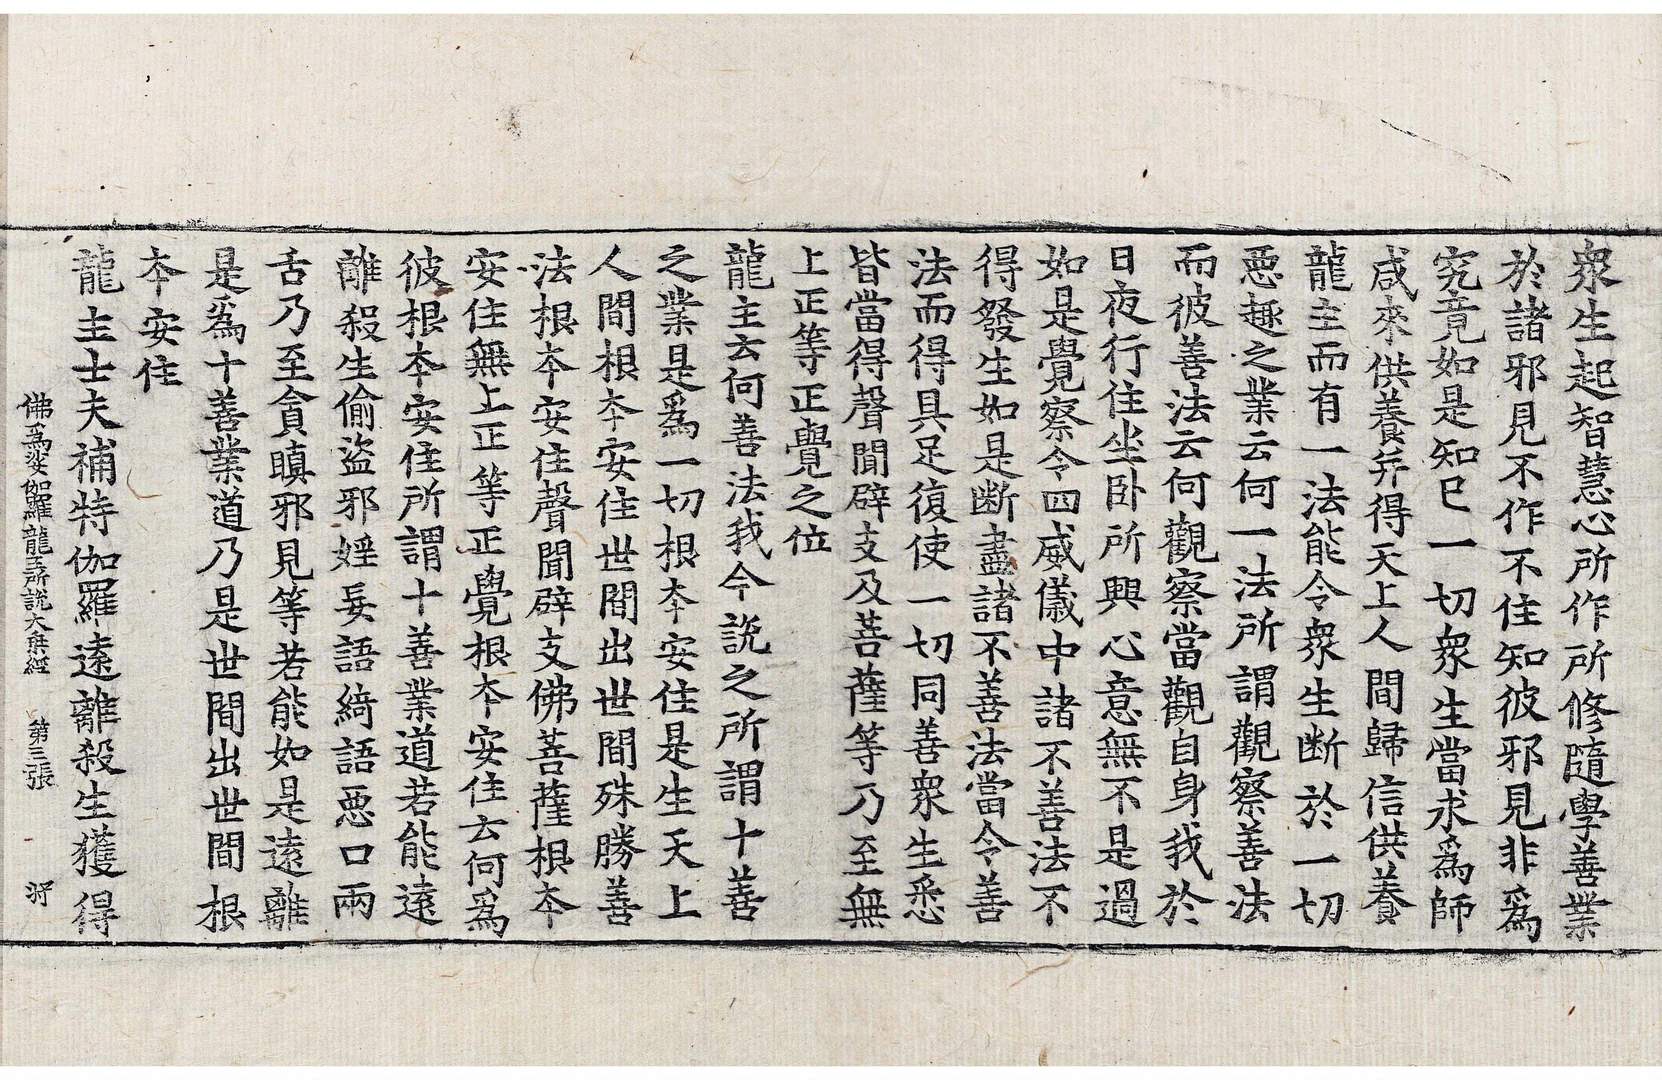 衆生起智慧心所作所修隨學善業
於諸邪見不作不住知彼邪見非爲
究竟如是知已一切衆生當求爲師
咸來供養并得天上人間歸信供養
龍主而有一法能令衆生断於一切
惡趣之業云何一法所謂觀察善法
而彼善法云何觀察當觀自身我於
日夜行住坐卧所興心意無不是過
如是覺察令四威儀中諸不善法不
得發生如是断盡諸不善法當令善
法而得具足復使一切同善衆生悉
皆當得聲聞辟支及菩薩等乃至無
上正等正覺之位
龍主云何善法我今說之所謂十善
之業是爲一切根夲安住是生天上
人間根夲安住世間出世間殊勝善
法根夲安住聲聞辟支佛菩薩根夲
安住無上正等正覺根夲安住云何爲
彼根夲安住所謂十善業道若能遠
離殺生偷盗邪婬妄語綺語惡口兩
舌乃至貪瞋邪見等若能如是遠離
是爲十善業道乃是世間出世間根
夲安住
龍主士夫補特伽羅遠離殺生獲得
佛爲娑伽羅龍王所說大乗經 第三張